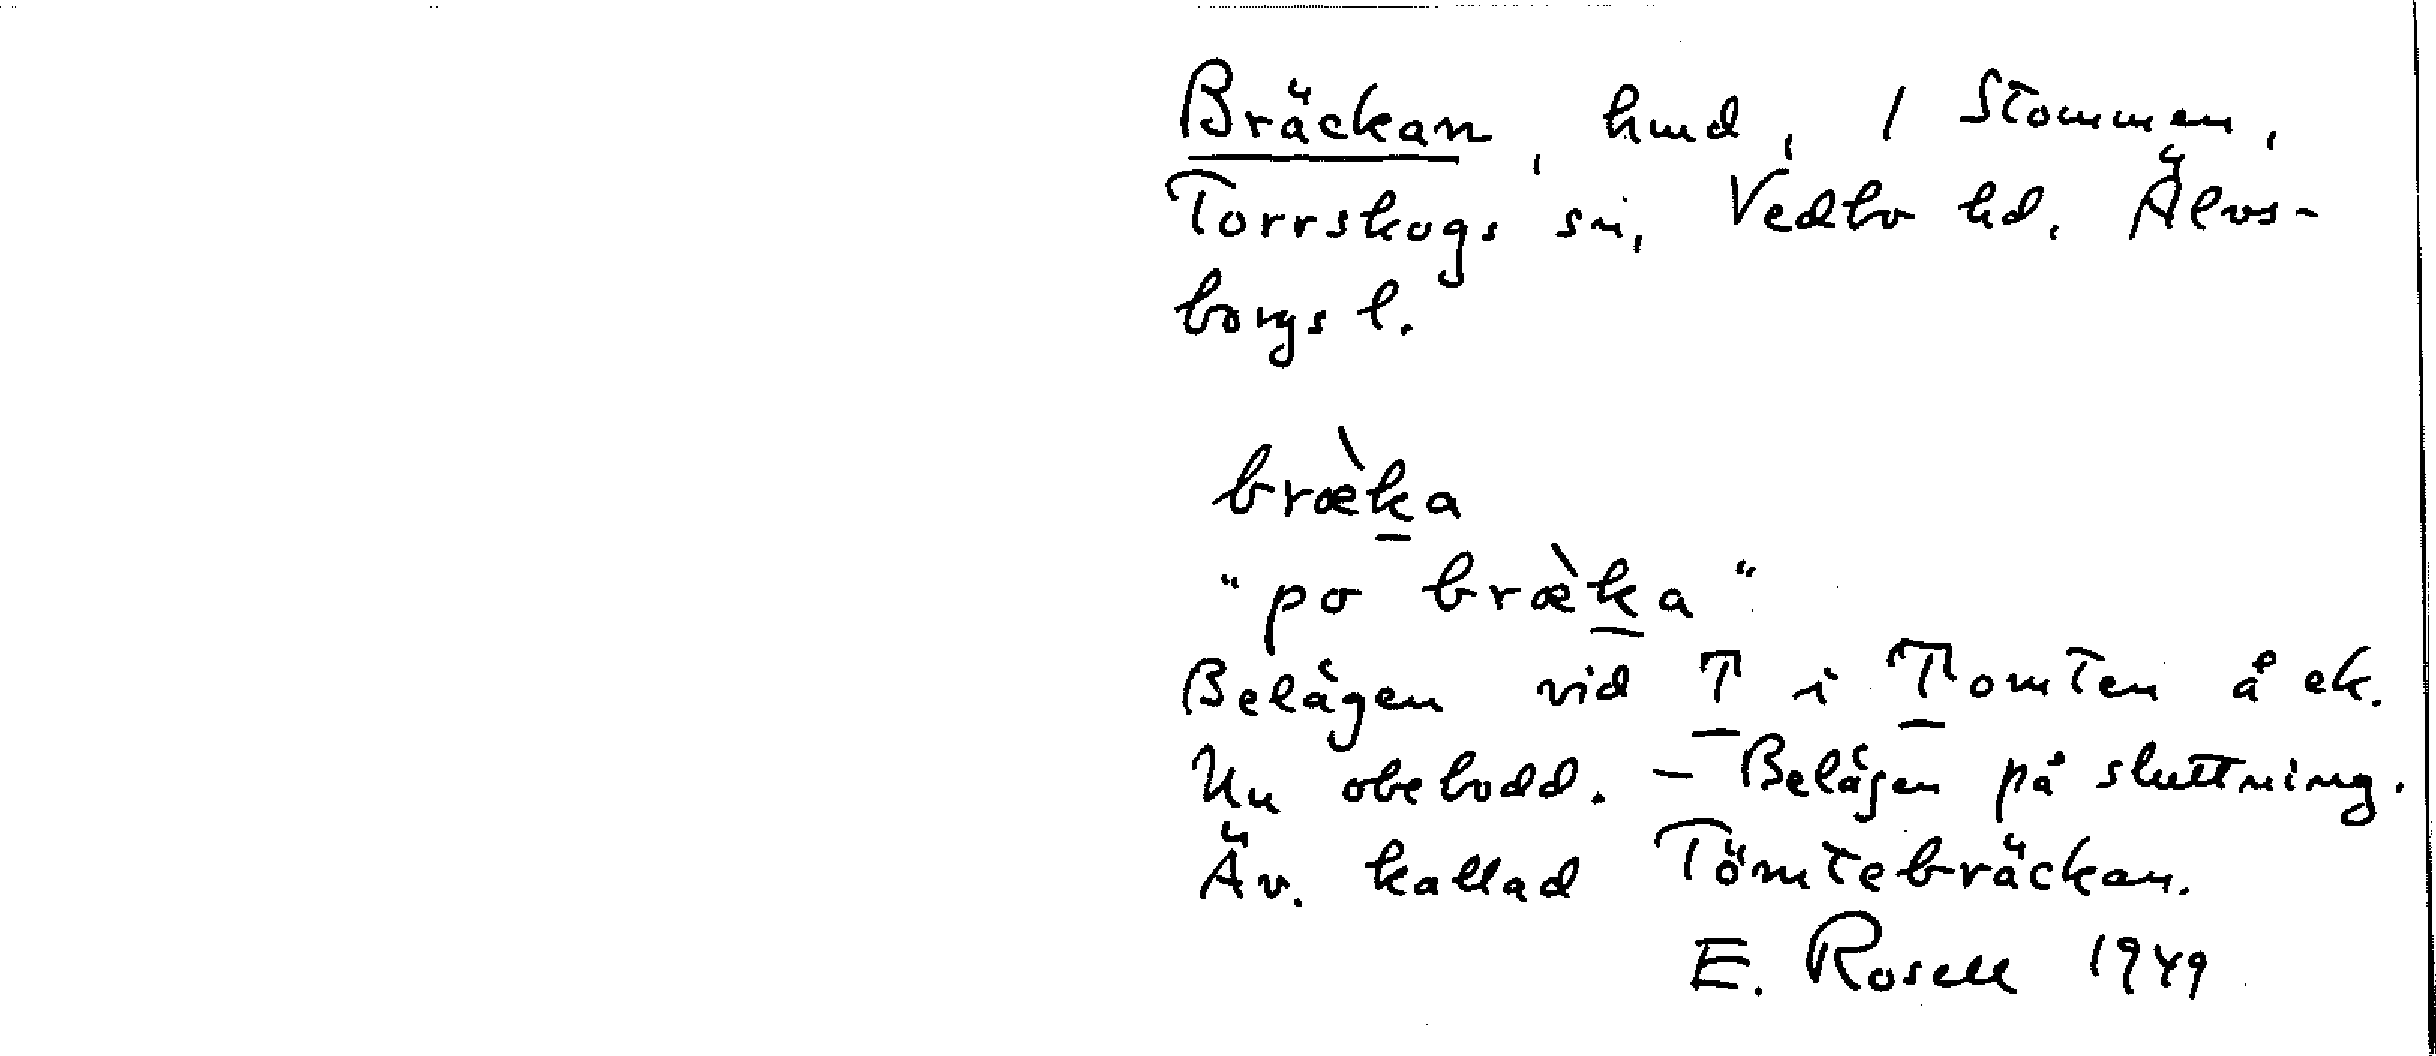 Bräckan, hmd, 1 Stommen,
Torrskogs sn, Vedbo hd. Älvs-
borgs l.
bræ̀ka
"po bræ̀ka"
Belägen vid T i Tomten å ek.
Nu obebodd. - Belägen på sluttning.
Äv. kallad Tömtebräckan.
E. Rosell 1949